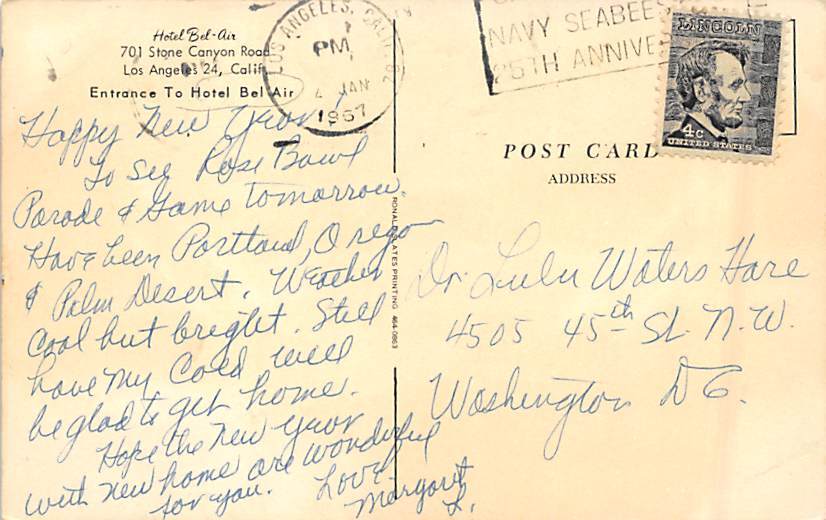 Hotel Bel-Air
701 Stone Canyon Road
Los Angeles 24, Calif.
Entrance To Hotel Bel Air
Happy New Year!
To See Rose Bowl
Parade & Game tomorrow.
Have been Portland, Oregon
& Palm Desert. Weather
cool but bright. Still
have my cold will
be glad to get home.
Hope the New Year
with new home are wonderful
for you. Love
Margaret
L.
RONALD BATES PRINTING 464-0863
LOS ANGELES, CALIF.
PM
2 JAN
1967
NAVY SEABEES
25TH ANNIVE
LINCOLN
4c
UNITED STATES
POST CARD
ADDRESS
Dr. Lulu Waters Hare
4505 45th St. N.W.
Washington D C.